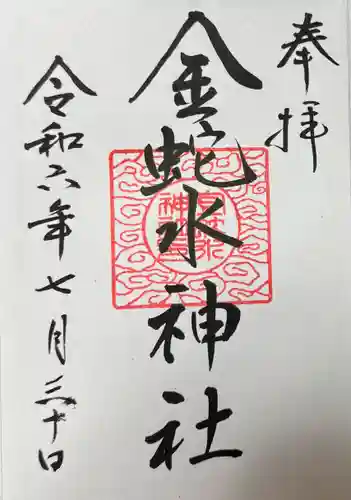 奉拝
金蛇水神社
令和六年七月三十日